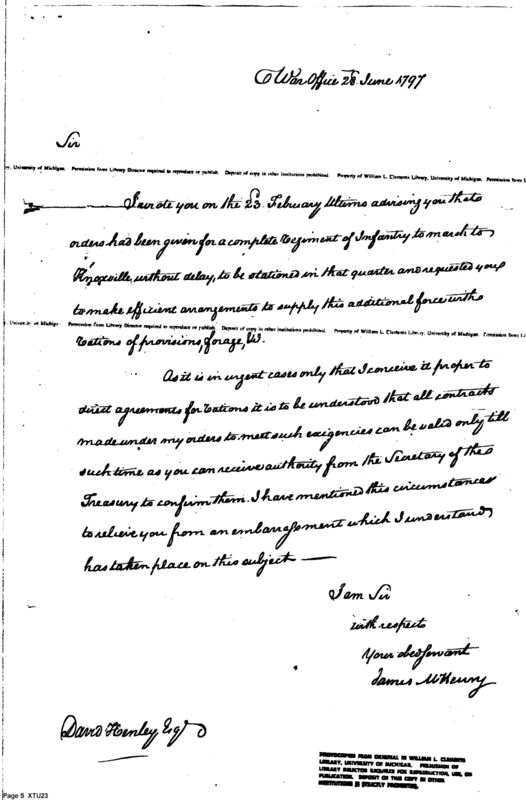 War Office 28 June 1797
Sir
y, University of Michigan. Permission from Library Director required to reproduce or publish. Deposit of copy in other institutions prohibited. Property of William L. Clements Library, University of Michigan. Permission from L
I wrote you on the 23. February Ultimo advising you that
orders had been given for a complete Regiment of Infantry to march to
Knoxville, without delay, to be stationed in that quarter and requested you
to make efficient arrangements to supply this additional force with
University of Michigan. Permission from Library Director required to reproduce or publish. Deposit of copy in other institutions prohibited. Property of William L. Clements Library, University of Michigan. Permission from Li
rations of provisions, forage, &c.
As it is in urgent cases only that I conceive it proper to
direct agreements for rations it is to be understood that all contracts
made under my orders to meet such exigencies can be valid only till
such time as you can receive authority from the Secretary of the
Treasury to confirm them. I have mentioned this circumstance
to relieve you from an embarrassment which I understand
has taken place on this subject —
I am Sir
with respect
Your obed Servant
James McHenry
David Henley Esqr
PHOTOCOPIED FROM ORIGINAL IN WILLIAM L. CLEMENTS
LIBRARY, UNIVERSITY OF MICHIGAN. PERMISSION OF
LIBRARY DIRECTOR REQUIRED FOR REPRODUCTION, USE, OR
PUBLICATION. DEPOSIT OF THIS COPY IN OTHER
INSTITUTIONS IS STRICTLY PROHIBITED.
Page 5 XTU23